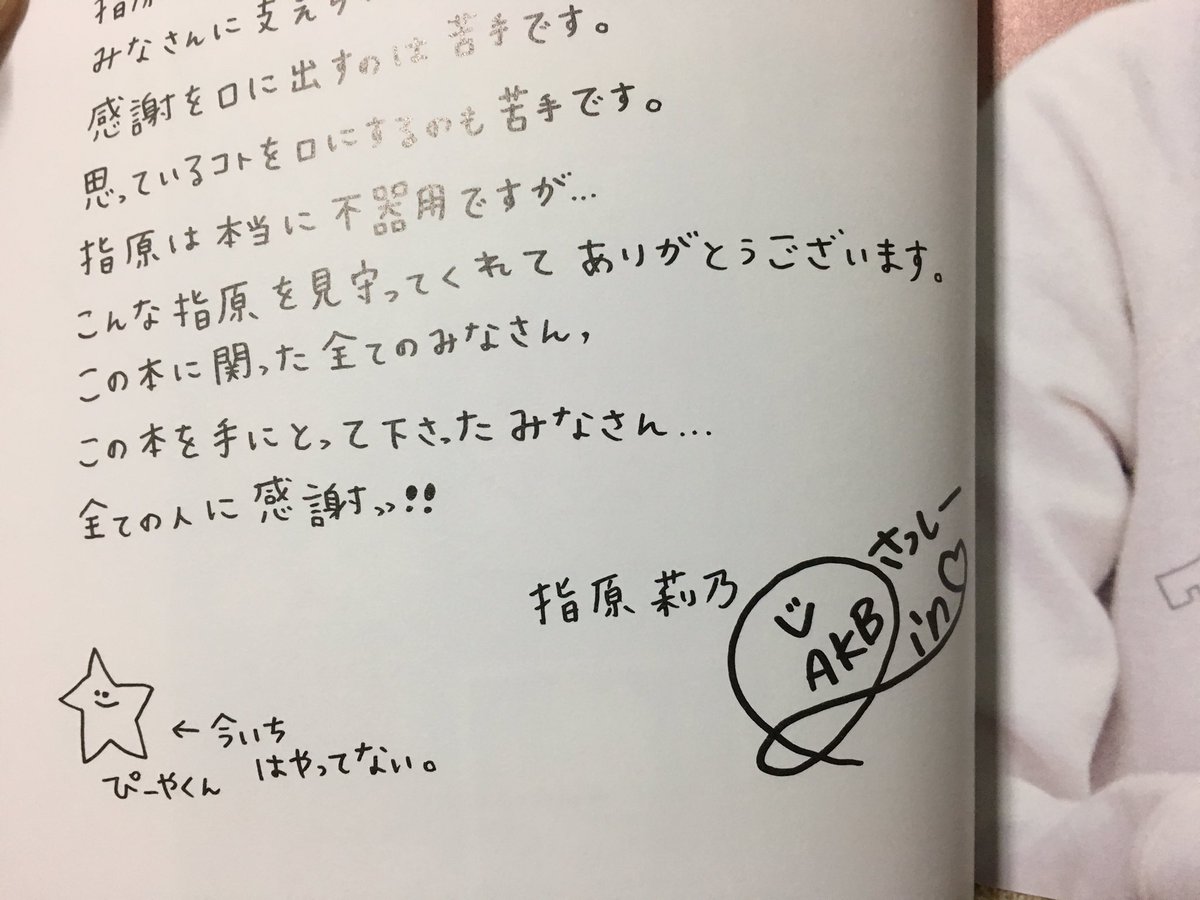 指原
みなさんに支え
感謝を口に出すのは苦手です。
思っているコトを口にするのも苦手です。
指原は本当に不器用ですが…
こんな指原を見守ってくれて ありがとうございます。
この本に関った全てのみなさん,
この本を手にとって下さったみなさん…
全ての人に感謝ッッ!!
指原 莉乃
さっしー
in♡
AKB
← 今いち
はやってない。
ぴーやくん